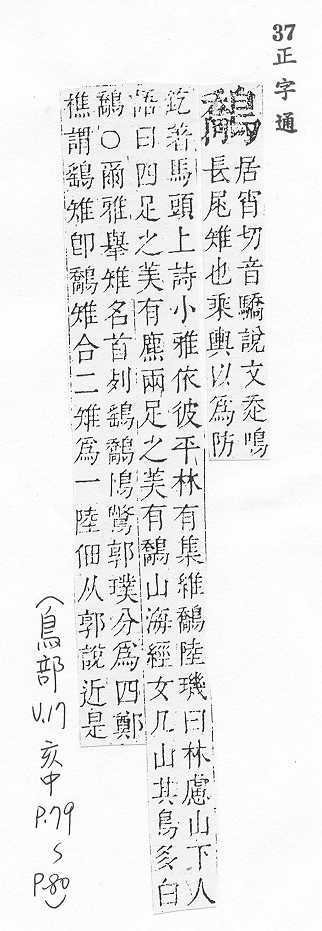 37
正字通
鷮
居宵切音驕說文走鳴
長尾雉也乘輿以爲防
釳著馬頭上詩小雅依彼平林有集維鷮陸璣曰林慮山下人
語曰四足之美有麃兩足之美有鷮山海經女几山其鳥多白
鷮○爾雅舉雉名首列鷂鷮鳪鷩郭璞分爲四鄭
樵謂鷂雉卽鷮雉合二雉爲一陸佃从郭說近是
(鳥部
V.17
亥中
P.79
~
P.80)